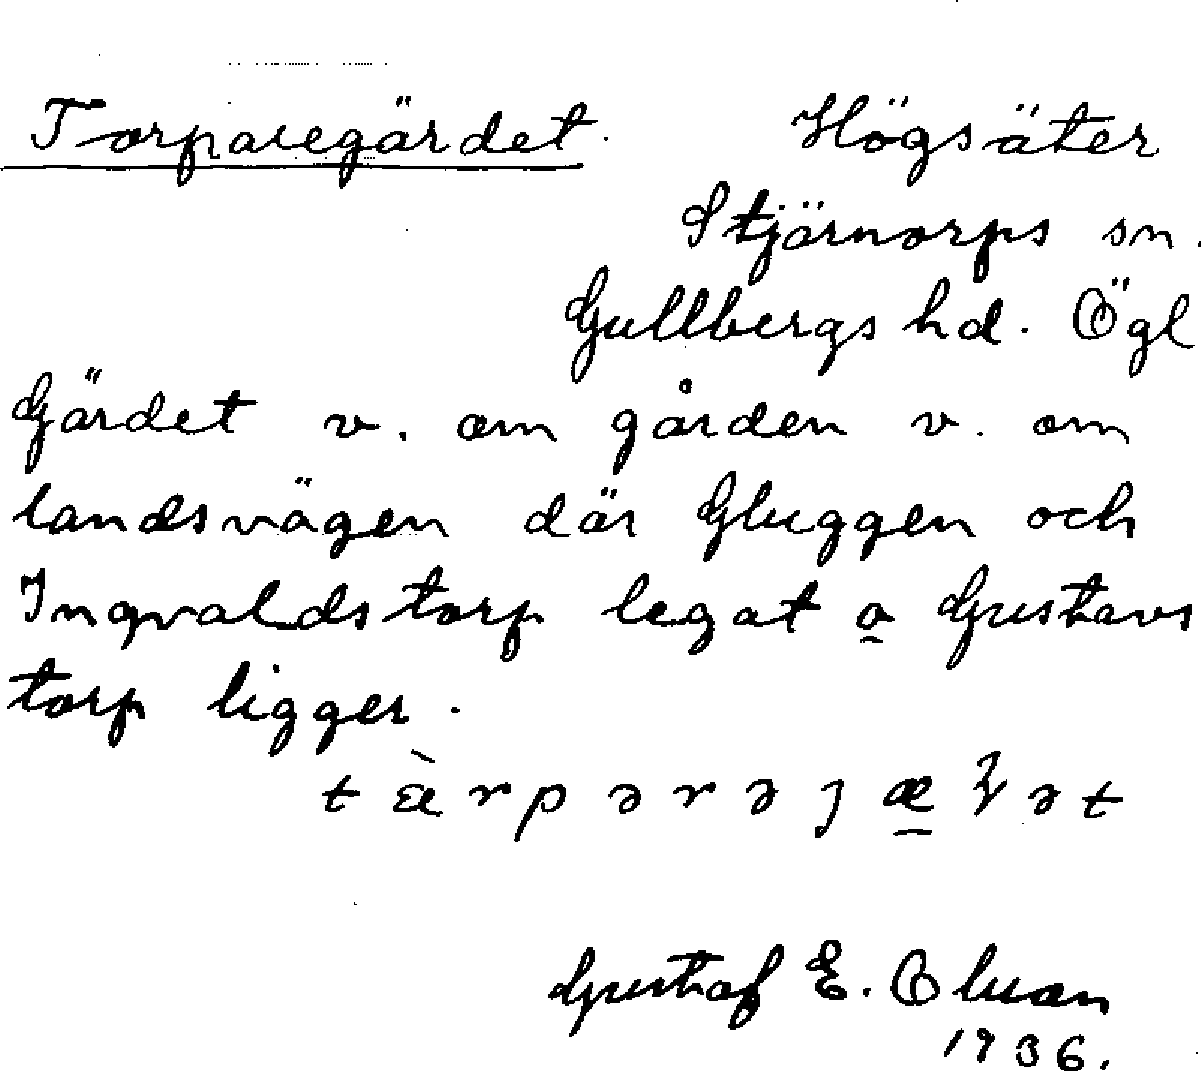 Torparegärdet. Högsäter
Stjärnorps sn.
Gullbergs hd. Ögl
Gärdet v. om gården v. om
landsvägen där Gluggen och
Ingvaldstorp legat o Gustavs
torp ligger.
Gustaf E. Olson
1936.